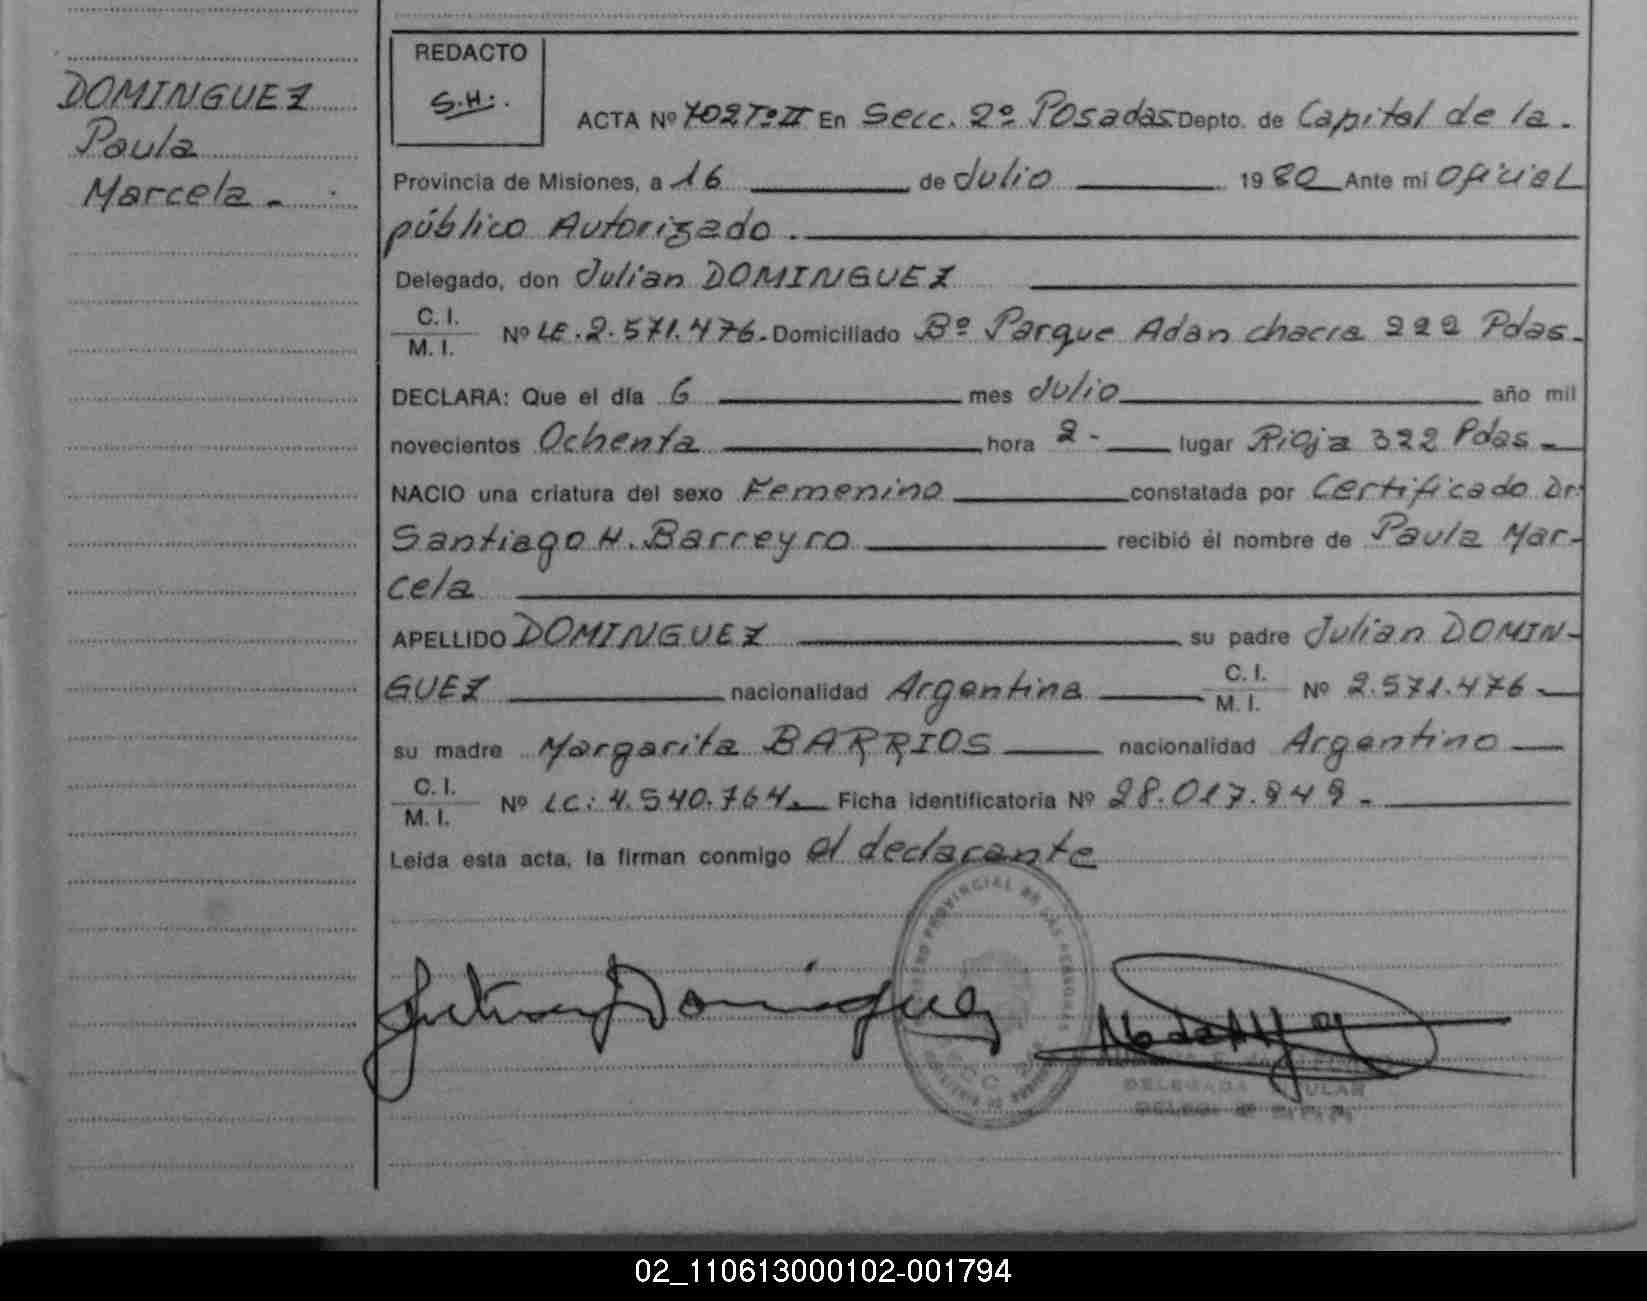 DOMINGUEZ
Paula
Marcela.-
REDACTO
S.H.
ACTA Nº 702 Tº II En Secc. 2º Posadas Depto. de Capital de la.
Provincia de Misiones, a 16 de Julio 1980 Ante mi Oficial
público Autorizado.
Delegado, don Julian DOMINGUEZ
C. I.
M. I. Nº LE.2.571.476. Domiciliado Bº Parque Adan chacra 222 Pdas.
DECLARA: Que el día 6 mes Julio año mil
novecientos Ochenta hora 2- lugar Rioja 322 Pdas.
NACIO una criatura del sexo Femenino constatada por Certificado Dr.
Santiago H. Barreyro recibió el nombre de Paula Mar-
cela
APELLIDO DOMINGUEZ su padre Julian DOMIN-
GUEZ nacionalidad Argentina C. I.
M. I. Nº 2.571.476
su madre Margarita BARRIOS nacionalidad Argentino
C. I.
M. I. Nº LC: 4.540.764. Ficha identificatoria Nº 28.017.949.-
Leída esta acta, la firman conmigo el declarante
Julian Dominguez
DELEGADA TITULAR
02_110613000102-001794